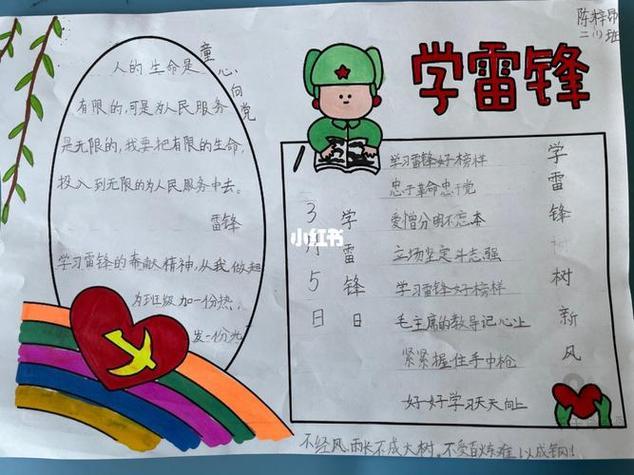 陈梓昂
二(1)班
学雷锋
童心向党
人的生命是
有限的,可是为人民服务
是无限的,我要把有限的生命,
投入到无限的为人民服务中去。
雷锋
学习雷锋的奉献精神,从我做起
为班级加一份热,
发一份光
3月5日
学雷锋日
小红书
学习雷锋好榜样
忠于革命忠于党
爱憎分明不忘本
立场坚定斗志强
学习雷锋好榜样
毛主席的教导记心上
紧紧握住手中枪
好好学习天天向上
学雷锋树新风
不经风雨长不成大树,不受百炼难以成钢!